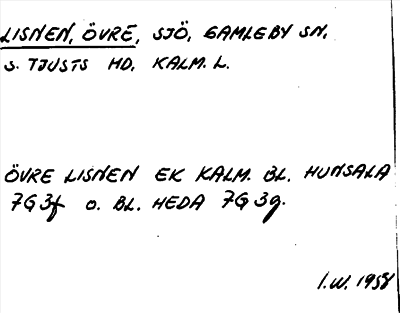 LISNEN, ÖVRE, SJÖ, GAMLEBY SN,
S. TJUSTS HD, KALM. L.
ÖVRE LISNEN EK KALM. BL. HUNSALA
7G3f o. BL. HEDA 7G3g.
I.W. 1958